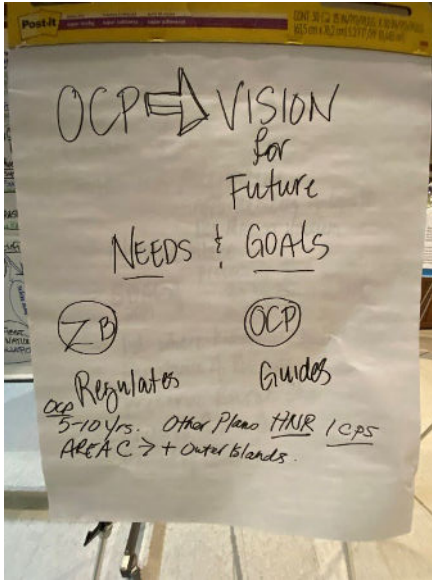 Post-it
OCP ⇒ VISION
for
Future
NEEDS & GOALS
ZB OCP
Regulates Guides
OCP
5-10 yrs. Other Plans HNR / CPS
AREA C > + Outer Islands.